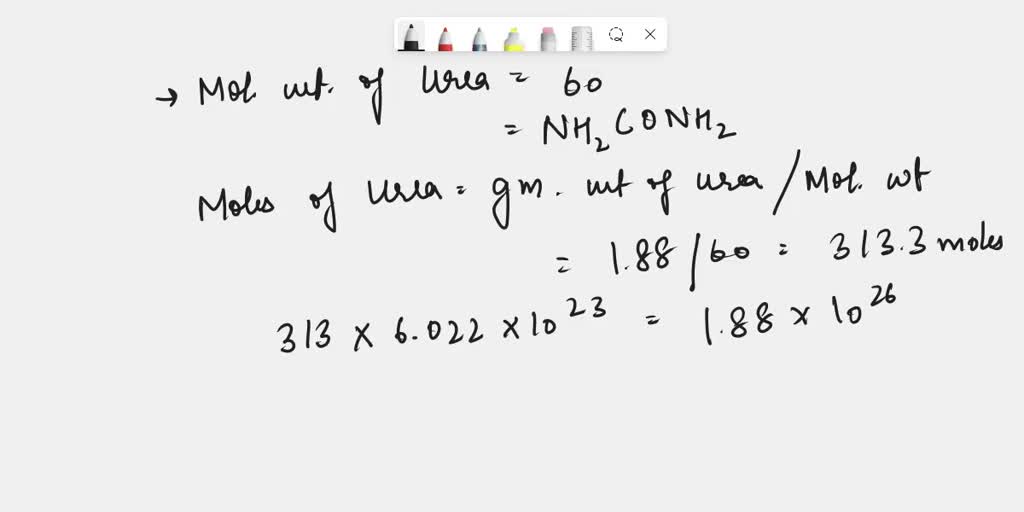 → Mol. wt. of Urea = 60
= NH₂CONH₂
Moles of Urea = gm. wt of urea / Mol. wt
= 1.88 / 60 = 313.3 moles
313 × 6.022 × 10²³ = 1.88 × 10²⁶